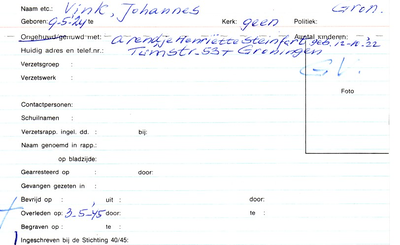 Naam etc.: Vink, Johannes Gron.
Geboren: 9-5-'24 te Kerk: geen Politiek:
Ongehuwd/gehuwd met: Arendje Henriëtte Steinfort geb. 12-11-'22 Aantal kinderen:
Huidig adres en telef.nr.: Tuinstr. 53+ Groningen
Verzetsgroep :
Verzetswerk :
Foto
Contactpersonen:
Schuilnamen :
Verzetsrapp. ingel. dd. : bij:
Naam genoemd in rapp.:
op bladzijde:
Gearresteerd op : door:
Gevangen gezeten in :
Bevrijd op : uit : door:
Overleden op: 3-5-'45 door: te :
Begraven op : te :
Ingeschreven bij de Stichting 40/45: